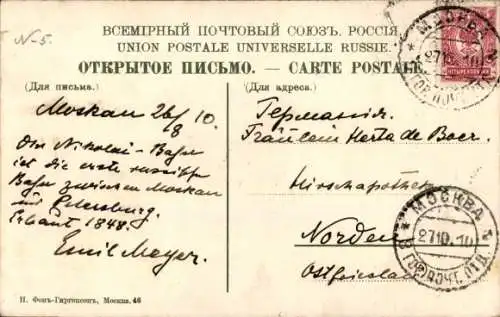 N-5.
ВСЕМІРНЫЙ ПОЧТОВЫЙ СОЮЗЪ. РОССІЯ.
UNION POSTALE UNIVERSELLE RUSSIE.
ОТКРЫТОЕ ПИСЬМО. — CARTE POSTALE
(Для письма.)
(Для адреса.)
Moskau 26/8 10.
Die Nikolai-Bahn
ist die erste russische
Bahn zwischen Moskau
und Petersburg.
Erbaut 1848.
Emil Meyer.
Германія.
Fräulein Herta de Boer.
Hirschapotheke
Norden
Ostfriesland
МОСКВА
27 10. 10
МОСКВА
27 10. 10
ГОР. ПОЧТ. ОТД.
П. Фонъ-Гиргенсонъ, Москва. 46